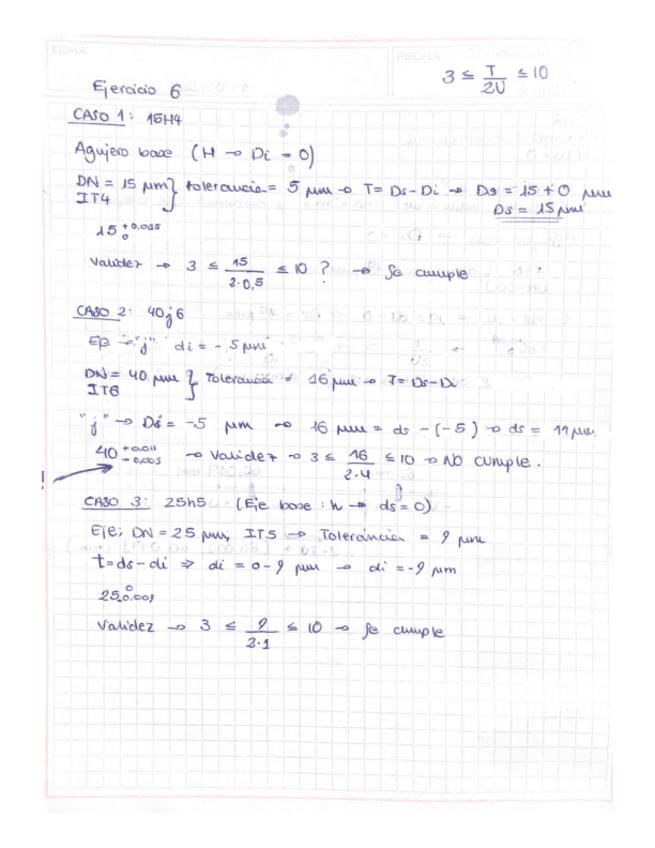 TEMA
FECHA
3 ≤ T/2U ≤ 10
Ejercicio 6
CASO 1: 15H4
Agujero base (H → Di = 0)
DN = 15 µm } tolerancia = 5 µm → T = Ds - Di → Ds = 15 + 0 µm
IT4
Ds = 15 µm
15 +0,005 0
Validez → 3 ≤ 15/2·0,5 ≤ 10 ? → Se cumple
CASO 2: 40j6
Eje → "j" di = -5 µm
DN = 40 µm } Tolerancia = 16 µm → T = Ds-Di
IT6
"j" → Di = -5 µm → 16 µm = ds - (-5) → ds = 11 µm.
40 +0.011 -0.005 → Validez → 3 ≤ 16/2·4 ≤ 10 → NO cumple.
CASO 3: 25h5 (Eje base : h → ds = 0)
Eje; DN = 25 µm, IT5 → Tolerancia = 9 µm
t = ds - di ⇒ di = 0 - 9 µm → di = -9 µm
25 0 -0.009
Validez → 3 ≤ 9/2·1 ≤ 10 → Se cumple